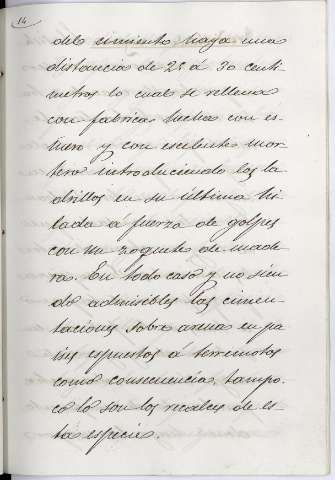 14
del cimiento haya una
distancia de 25 á 30 centí-
metros lo cual se rellena
con fabrica hecha con es-
mero y con escelente mor
tero introduciendo los la
drillos en su última hi
lada á fuerza de golpes
con un zoquete de made
ra. En todo caso y no sien
do admisibles las cimen-
taciones sobre arena en pa
ises espuestos á terremotos
como consecuencia, tampo-
co lo son los recalces de es-
ta especie.